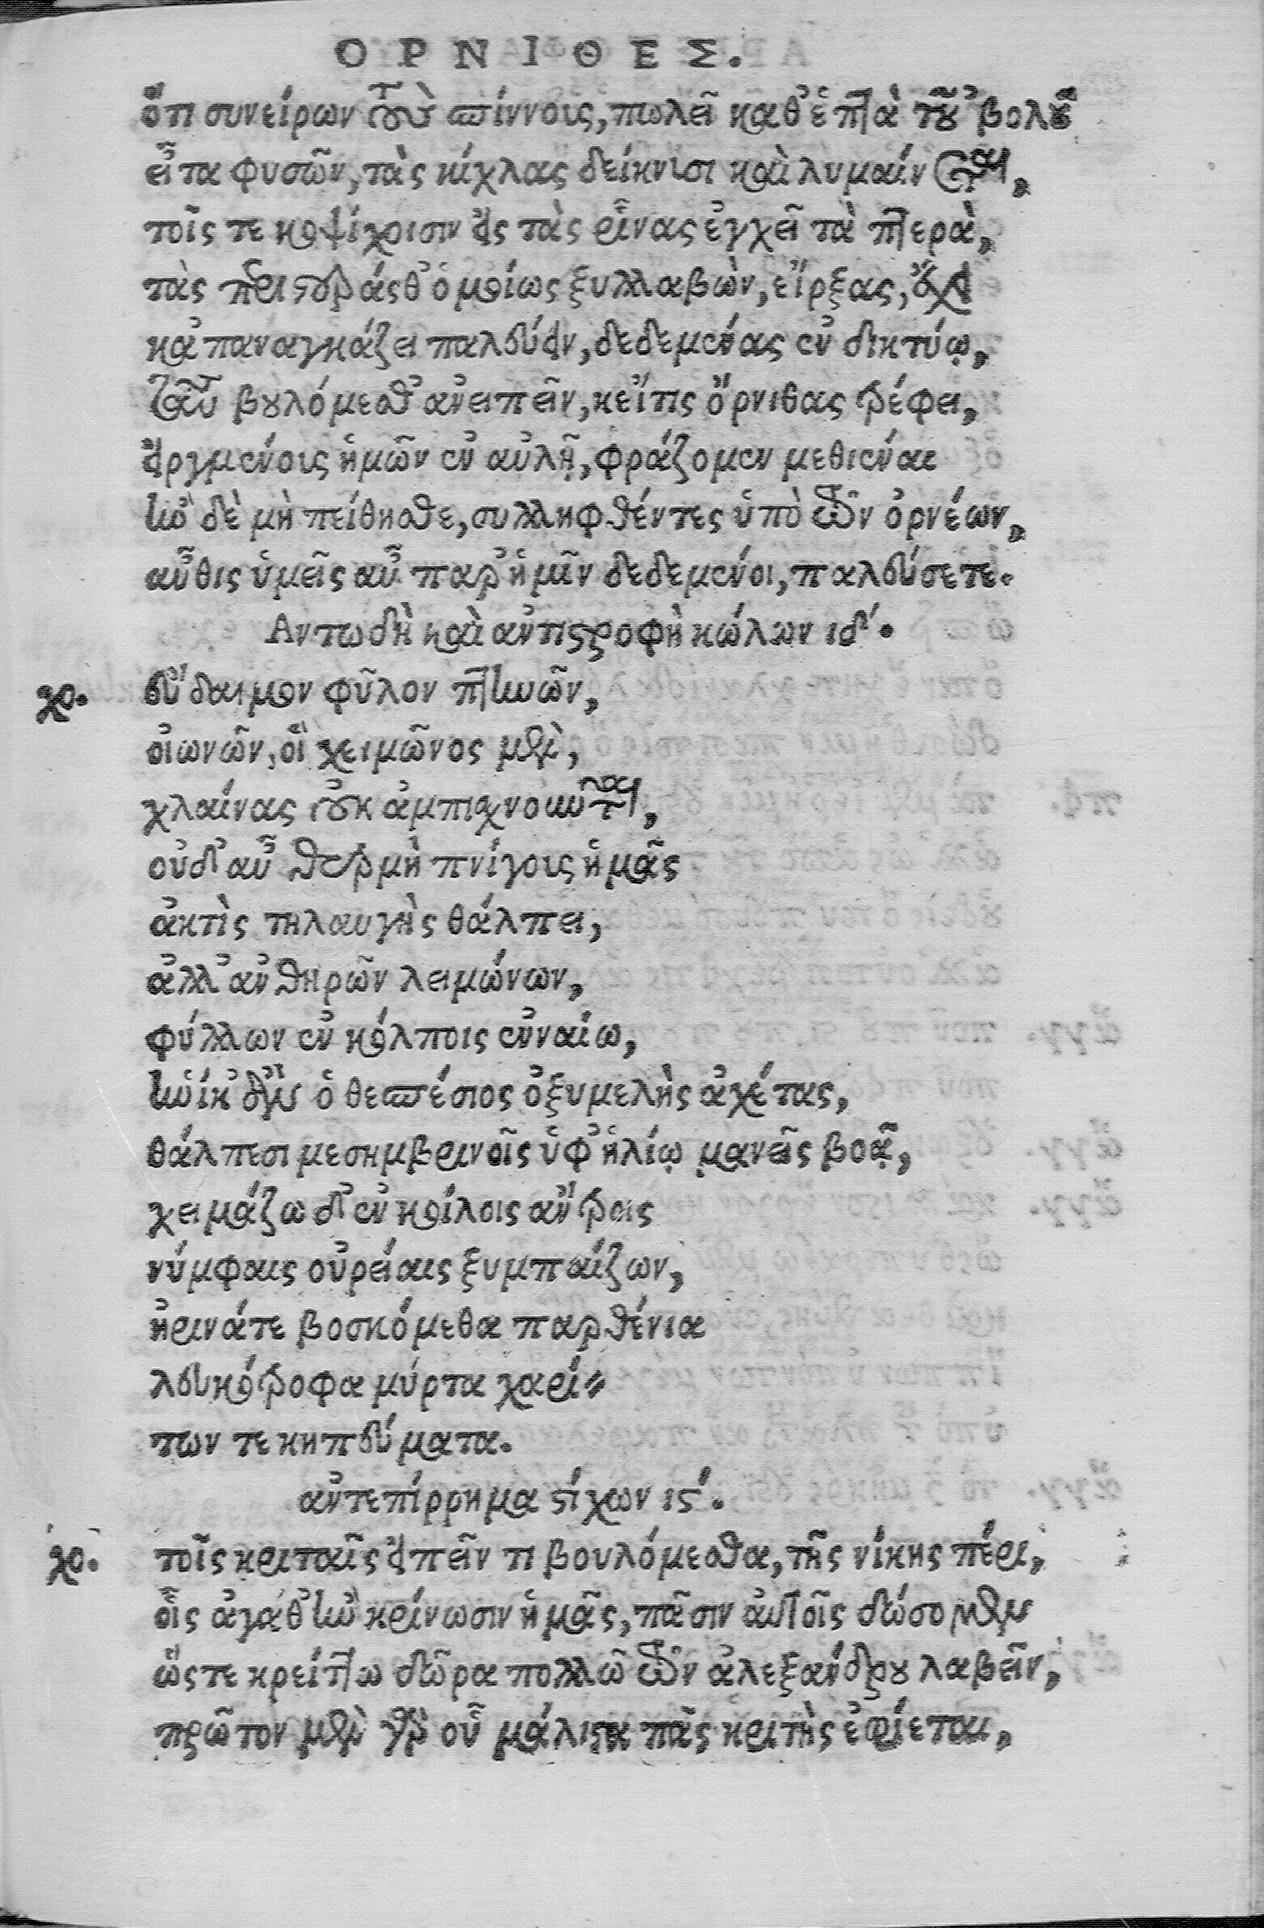 ΟΡΝΙΘΕΣ.
ὅτι συνείρων τοὺς σπίννους, πωλεῖ καθ' ἑπτὰ τοῦ 'βολοῦ
εἶτα φυσῶν, τὰς κίχλας δείκνυσι καὶ λυμαίνεται,
τοῖς τε κοψίχοισιν εἰς τὰς ῥῖνας ἐγχεῖ τὰ πτερὰ,
τὰς περιστεράς θ' ὁμοίως ξυλλαβὼν, εἴρξας, ἔχει
κἀπαναγκάζει παλεύειν, δεδεμένας ἐν δικτύῳ,
ταῦτα βουλόμεσθ' ἀνειπεῖν, κεἴτις ὄρνιθας τρέφει,
εἱργμένους ἡμῶν ἐν αὐλῇ, φράζομεν μεθιέναι
ἢν δὲ μὴ πείθησθε, συλληφθέντες ὑπὸ τῶν ὀρνέων,
αὖθις ὑμεῖς αὖ παρ' ἡμῖν δεδεμένοι, παλεύσετε.
Αντωδὴ καὶ ἀντιστροφὴ κώλων ιδ'.
χο. εὔδαιμον φῦλον πτηνῶν,
οἰωνῶν, οἳ χειμῶνος μὲν,
χλαίνας οὐκ ἀμπισχνοῦνται,
οὐδ' αὖ θερμὴ πνίγους ἡμᾶς
ἀκτὶς τηλαυγὴς θάλπει,
ἀλλ' ἀνθηρῶν λειμώνων,
φύλλων ἐν κόλποις ἐνναίω,
ἡνίκ' ἂν ὁ θεσπέσιος ὀξυμελὴς ἀχέτας,
θάλπεσι μεσημβρινοῖς ὑφ' ἡλίῳ μανεὶς βοᾷ,
χειμάζω δ' ἐν κοίλοις ἄντροις
νύμφαις οὐρείαις ξυμπαίζων,
ἠρινάτε βοσκόμεθα παρθένια
λευκότροφα μύρτα χαρί-
των τε κηπεύματα.
ἀντεπίρρημα στίχων ιϛ'.
χο. τοῖς κριταῖς εἰπεῖν τι βουλόμεσθα, τῆς νίκης πέρι,
οἷς ἀγάθ' ἢν κρίνωσιν ἡμᾶς, πᾶσιν αὐτοῖς δώσομεν
ὥστε κρείττω δῶρα πολλῶ τῶν ἀλεξάνδρου λαβεῖν,
πρῶτον μὲν γὰρ οὗ μάλιστα πᾶς κριτὴς ἐφίεται,